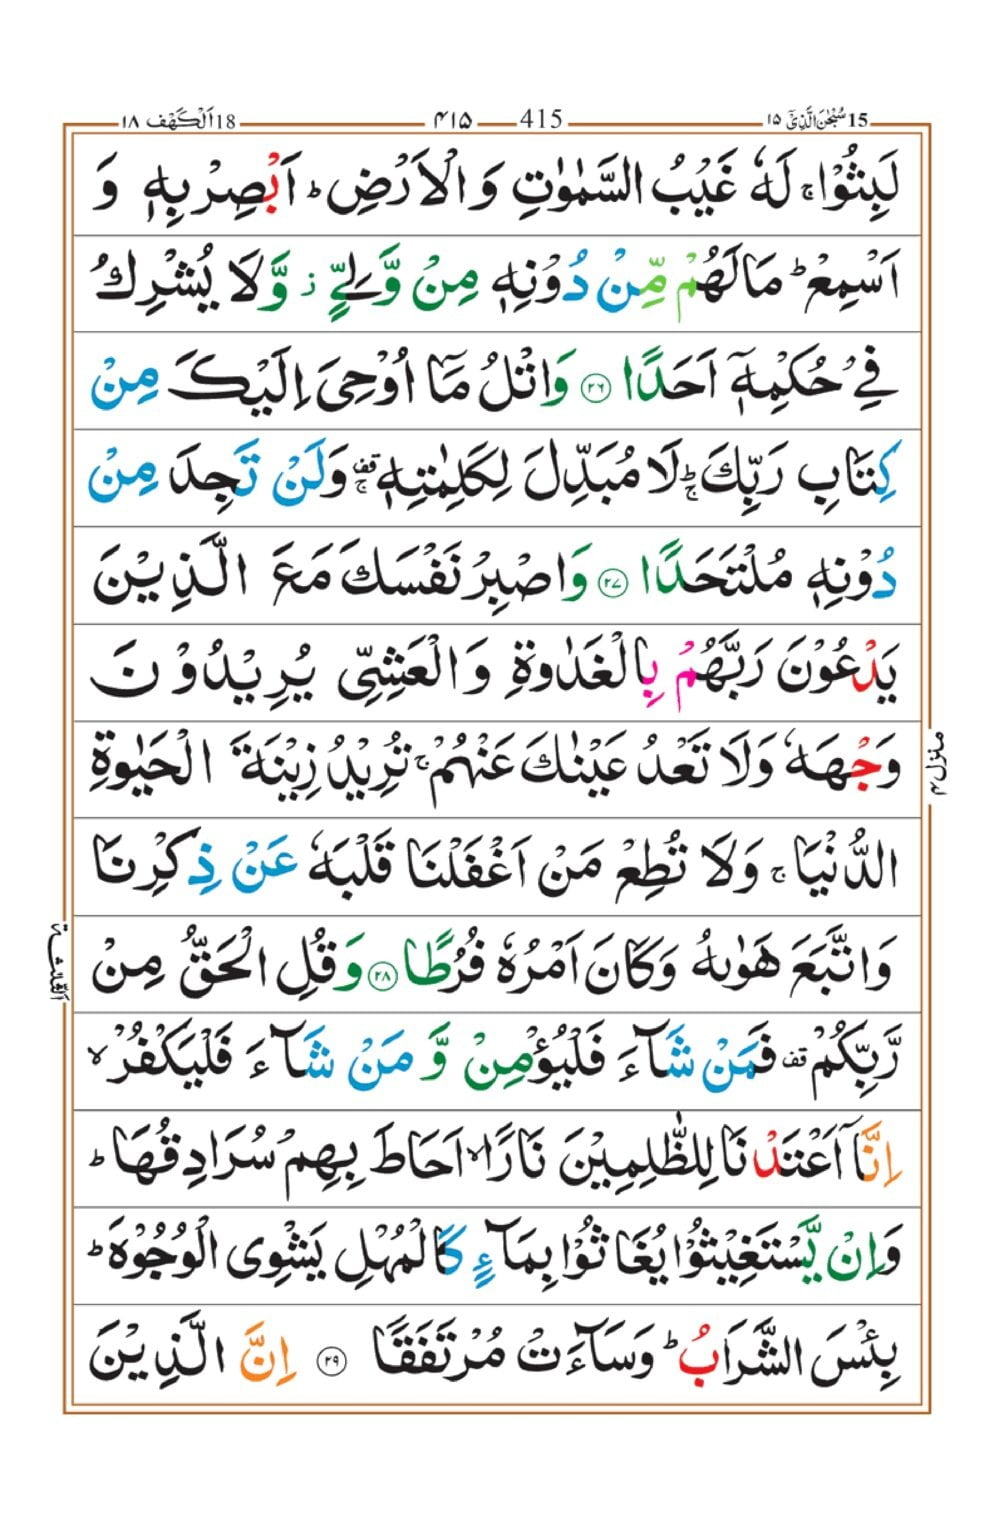 18 اَلْكَهْف ١٨
415 ٤١٥
15 سُبْحٰنَ الَّذِيْٓ ١٥
لَبِثُوْا ۚ لَهٗ غَيْبُ السَّمٰوٰتِ وَ الْاَرْضِ ؕ اَبْصِرْ بِهٖ وَ
اَسْمِعْ ؕ مَا لَهُمْ مِّنْ دُوْنِهٖ مِنْ وَّلِيٍّ ز وَّ لَا يُشْرِكُ
فِيْ حُكْمِهٖٓ اَحَدًا ۝٢٦ وَ اتْلُ مَاۤ اُوْحِيَ اِلَيْكَ مِنْ
كِتَابِ رَبِّكَ ؕۚ لَا مُبَدِّلَ لِكَلِمٰتِهٖ قف ۚ وَ لَنْ تَجِدَ مِنْ
دُوْنِهٖ مُلْتَحَدًا ۝٢٧ وَ اصْبِرْ نَفْسَكَ مَعَ الَّذِيْنَ
يَدْعُوْنَ رَبَّهُمْ بِالْغَدٰوةِ وَ الْعَشِيِّ يُرِيْدُوْنَ
وَجْهَهٗ وَ لَا تَعْدُ عَيْنٰكَ عَنْهُمْ ۚ تُرِيْدُ زِيْنَةَ الْحَيٰوةِ
الدُّنْيَا ۚ وَ لَا تُطِعْ مَنْ اَغْفَلْنَا قَلْبَهٗ عَنْ ذِكْرِنَا
وَ اتَّبَعَ هَوٰىهُ وَ كَانَ اَمْرُهٗ فُرُطًا ۝٢٨ وَ قُلِ الْحَقُّ مِنْ
رَّبِّكُمْ قف فَمَنْ شَآءَ فَلْيُؤْمِنْ وَّ مَنْ شَآءَ فَلْيَكْفُرْ ۙ
اِنَّاۤ اَعْتَدْنَا لِلظّٰلِمِيْنَ نَارًا ۙ اَحَاطَ بِهِمْ سُرَادِقُهَا ؕ
وَ اِنْ يَّسْتَغِيْثُوْا يُغَاثُوْا بِمَآءٍ كَالْمُهْلِ يَشْوِي الْوُجُوْهَ ؕ
بِئْسَ الشَّرَابُ ؕ وَ سَآءَتْ مُرْتَفَقًا ۝٢٩ اِنَّ الَّذِيْنَ
منزل ٤
الثلٰثة